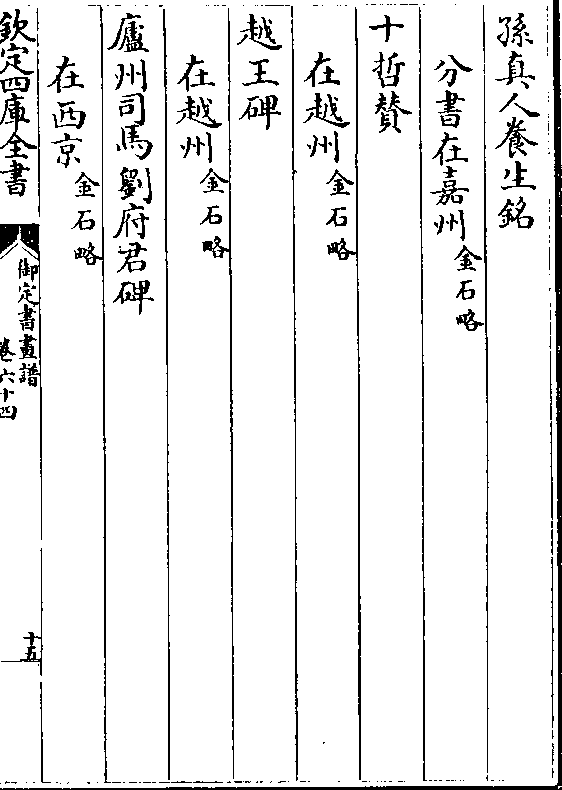 孫真人養生銘
分書在嘉州金石略
十哲賛
在越州金石略
越王碑
在越州金石略
廬州司馬劉府君碑
在西京金石略
欽定四庫全書
御定書畫譜
卷六十四
十五